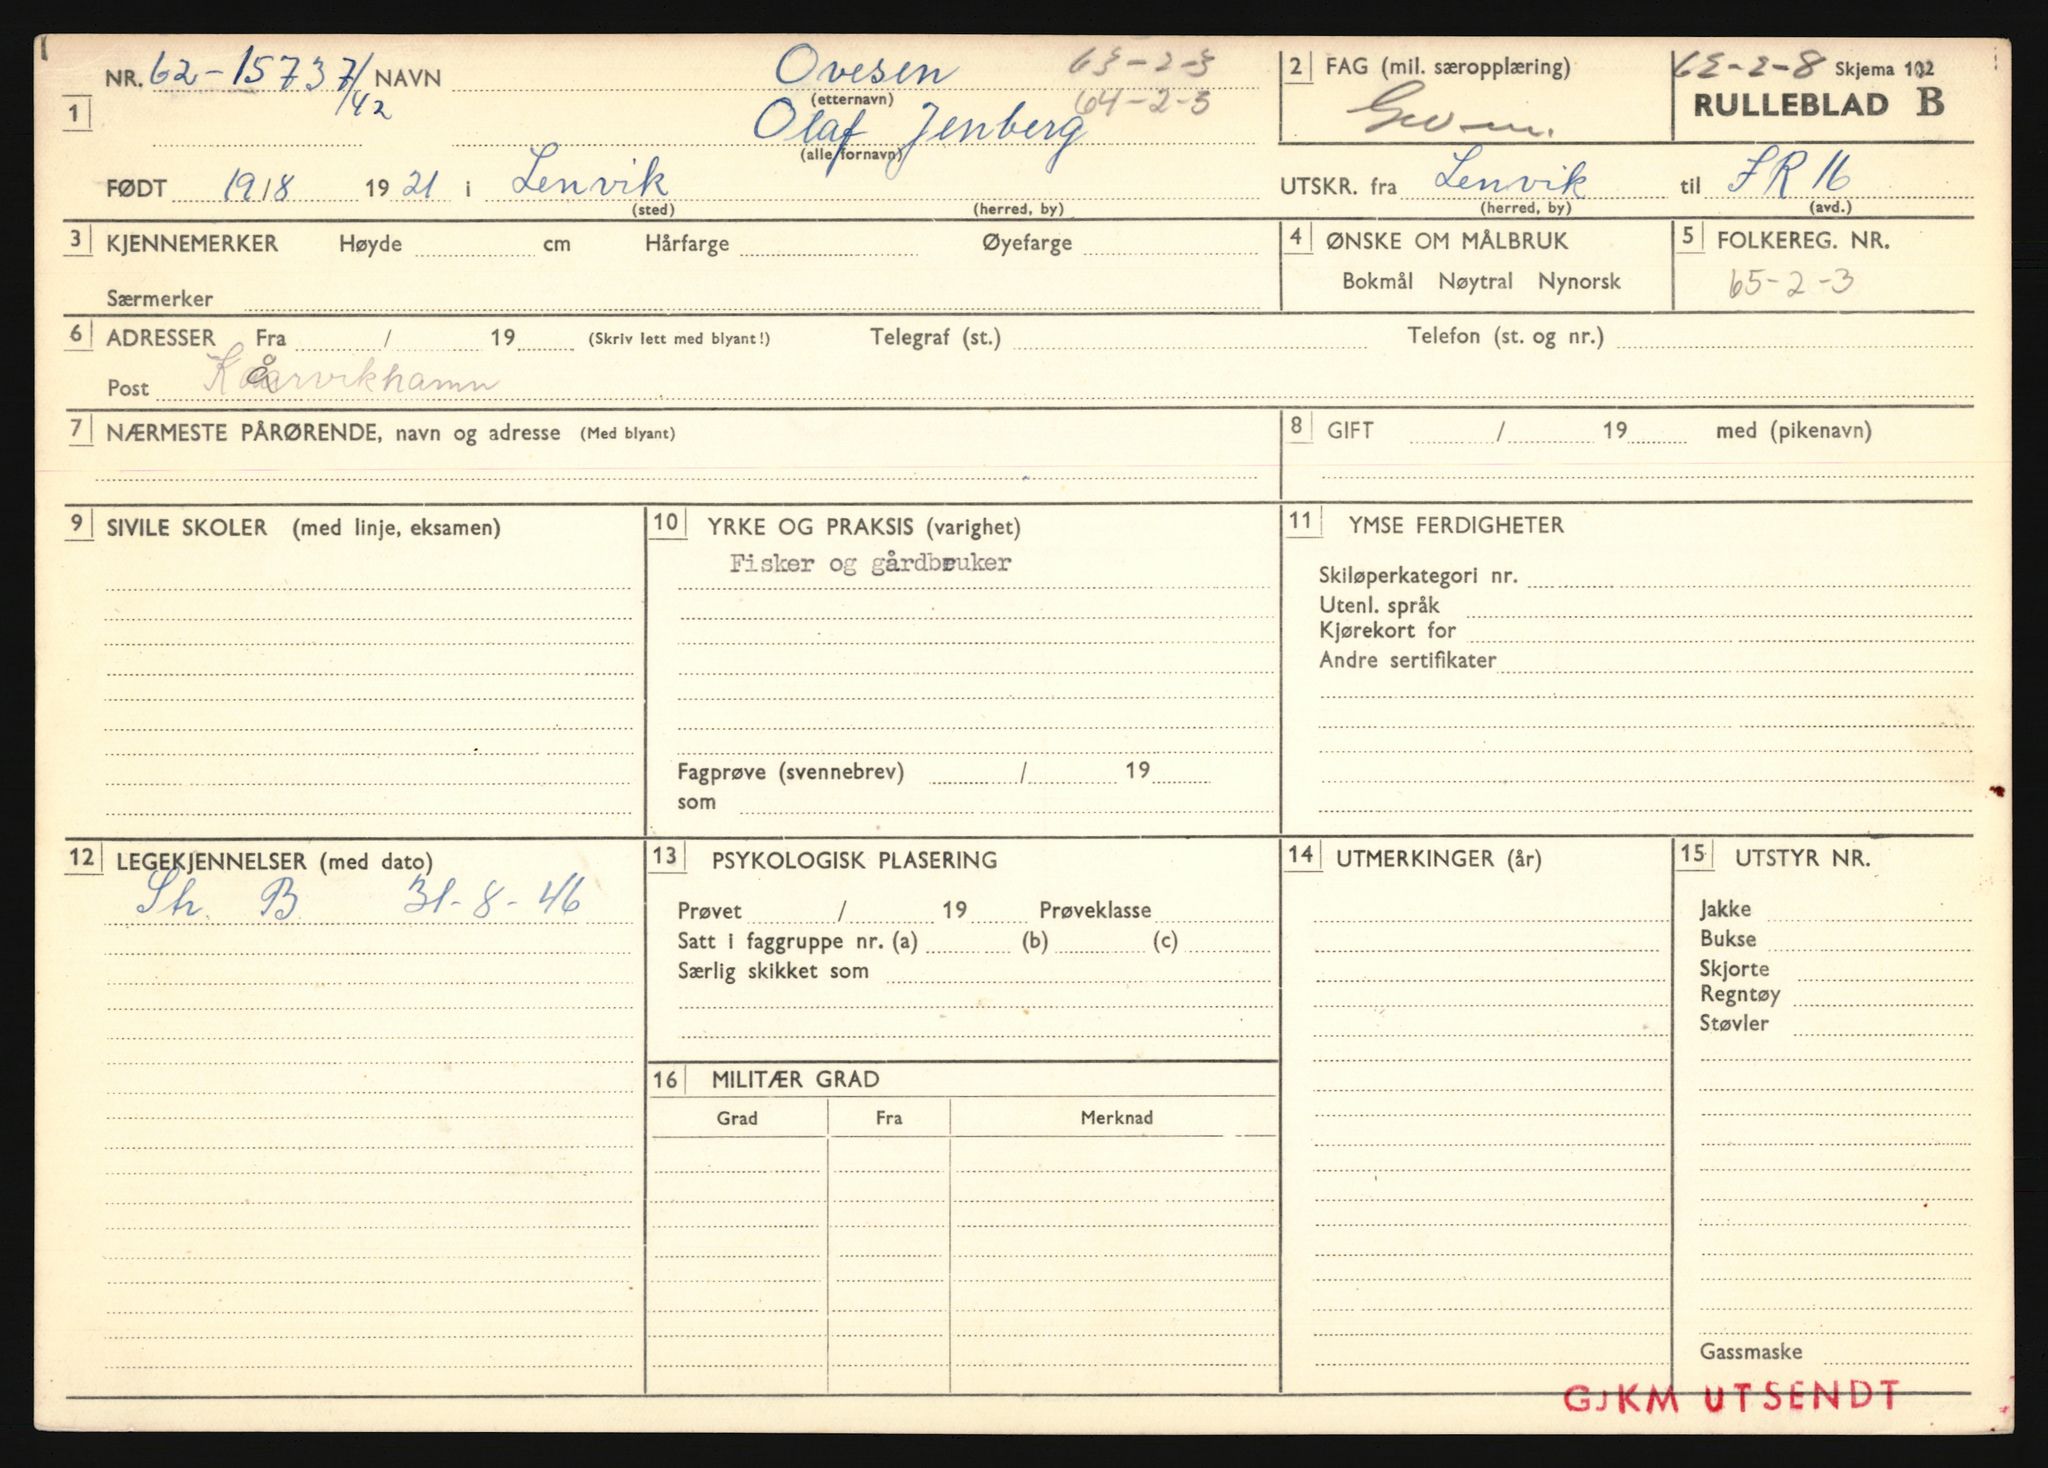 NR. 62-15737/42 NAVN Ovesen 63-2-3
(etternavn) 64-2-3
1 Olaf Jenberg
(alle fornavn)
FØDT 19/8 1921 i Lenvik
(sted) (herred, by)
2 FAG (mil. særopplæring)
62-2-8 Skjema 102
RULLEBLAD B
UTSKR. fra Lenvik til IR 16
(herred, by) (avd.)
3 KJENNEMERKER Høyde cm Hårfarge Øyefarge
Særmerker
4 ØNSKE OM MÅLBRUK
Bokmål Nøytral Nynorsk
5 FOLKEREG. NR.
65-2-3
6 ADRESSER Fra / 19 (Skriv lett med blyant!) Telegraf (st.) Telefon (st. og nr.)
Post Kårvikhamn
7 NÆRMESTE PÅRØRENDE, navn og adresse (Med blyant)
8 GIFT / 19 med (pikenavn)
9 SIVILE SKOLER (med linje, eksamen)
10 YRKE OG PRAKSIS (varighet)
Fisker og gårdbruker
Fagprøve (svennebrev) / 19
som
11 YMSE FERDIGHETER
Skiløperkategori nr.
Utenl. språk
Kjørekort for
Andre sertifikater
12 LEGEKJENNELSER (med dato)
St. B 31-8-46
13 PSYKOLOGISK PLASERING
Prøvet / 19 Prøveklasse
Satt i faggruppe nr. (a) (b) (c)
Særlig skikket som
14 UTMERKINGER (år)
15 UTSTYR NR.
Jakke
Bukse
Skjorte
Regntøy
Støvler
Gassmaske
16 MILITÆR GRAD
Grad Fra Merknad
GJKM UTSENDT